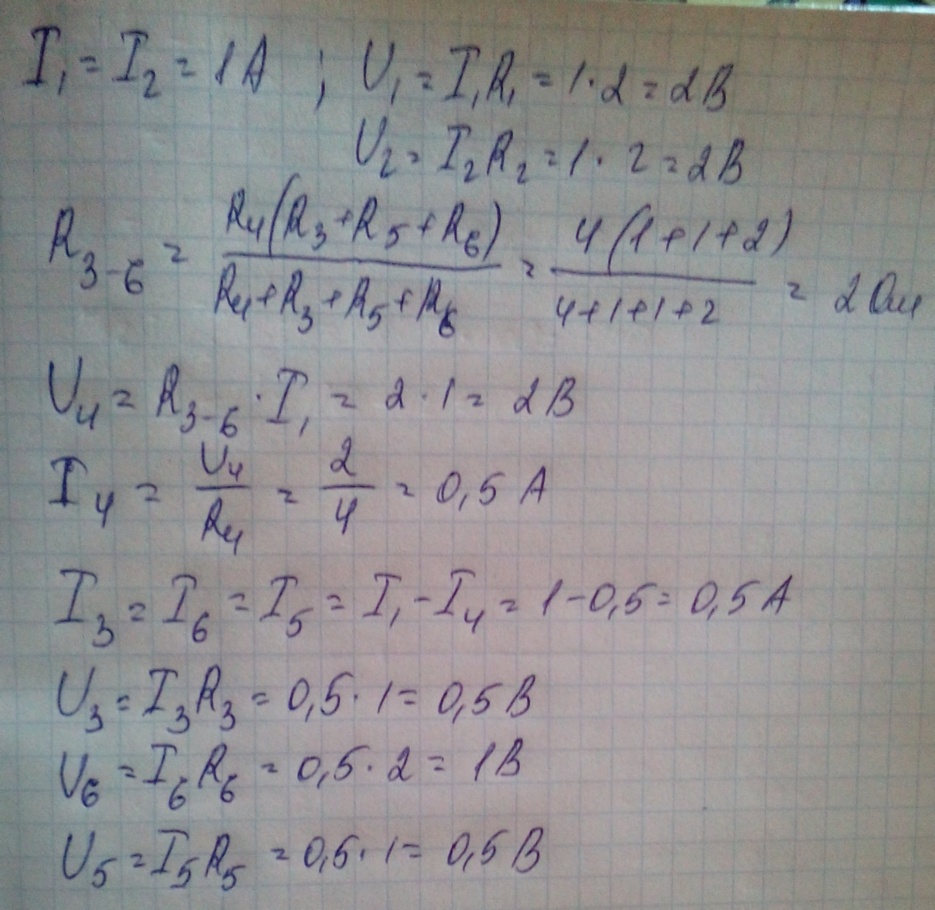 I₁ = I₂ = 1A ; U₁ = I₁R₁ = 1·2 = 2В
U₂ = I₂R₂ = 1·2 = 2В
R₃₋₆ = R₄(R₃+R₅+R₆) / R₄+R₃+R₅+R₆ = 4(1+1+2) / 4+1+1+2 = 2 Ом
U₄ = R₃₋₆ · I₁ = 2·1 = 2В
I₄ = U₄ / R₄ = 2 / 4 = 0,5 A
I₃ = I₆ = I₅ = I₁ - I₄ = 1-0,5 = 0,5 A
U₃ = I₃R₃ = 0,5·1 = 0,5 В
U₆ = I₆R₆ = 0,5·2 = 1В
U₅ = I₅R₅ = 0,5·1 = 0,5 В